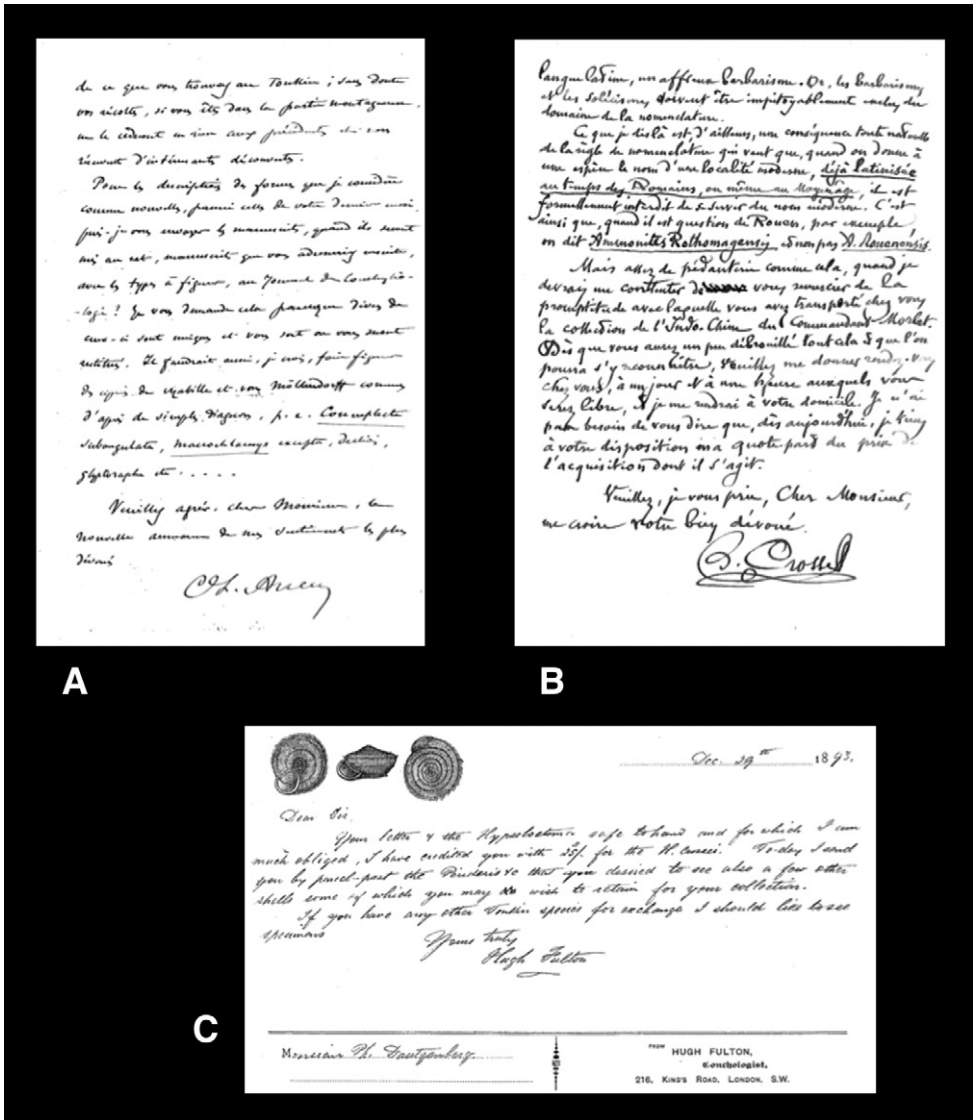 de ce que vous trouvez au Tonkin ; sans doute
vos récoltes, si vous êtes dans la partie montagneuse,
ne le cèdent en rien aux précédents et nous
d'intéressants découverts.
Pour les descriptions des formes que je considère
comme nouvelles, parmi celles de votre dernier envoi,
puis-je vous envoyer le manuscrit, quand ils seront
mis au net, manuscrit que vous adresserez ensuite,
avec les types à figurer, au Journal de Conchylio-
-logie ? Je vous demande cela parceque divers de
ceux-ci sont uniques et vous sont ou vous seront
restitués. Il faudrait aussi, je crois, faire figurer
des espèces de et von Möllendorff connues
d'après de simples diagnoses, p. e.
subangulata, Macrochlamys
glyptoraphe etc . . . . .
Veuillez agréer, cher Monsieur, la
nouvelle assurance de mes sentiments les plus
dévoués
A
langue latine, un affreux barbarisme. Or, les barbarismes
et les solécismes doivent être impitoyablement exclus du
domaine de la nomenclature.
Ce que je dis là est, d'ailleurs, une conséquence toute naturelle
de la règle de nomenclature qui veut que, quand on donne à
une espèce le nom d'une localité moderne, déjà latinisée
au temps des Romains, ou même au Moyen âge, il est
formellement interdit de se servir du nom moderne. C'est
ainsi que, quand il est question de Rouen, par exemple,
on dit Ammonites Rothomagensis, et non pas A. Rouenensis.
Mais assez de pédanterie comme cela, quand je
devrais me contenter de vous remercier de la
promptitude avec laquelle vous avez transporté chez vous
la collection de l'Indo-Chine du Commandant Morlet.
Dès que vous aurez un peu débrouillé tout cela & que l'on
pourra s'y reconnaître, veuillez me donner rendez-vous
chez vous, à un jour & à une heure auxquels vous
serez libre, & je me rendrai à votre domicile. Je n'ai
pas besoin de vous dire que, dès aujourd'hui, je tiens
à votre disposition ma quote part du prix de
l'acquisition dont il s'agit.
Veuillez, je vous prie, Cher Monsieur,
me croire votre bien dévoué.
Crosse
B
Dec. 29th 1893.
Dear Sir.
Your letter & the Hypselostoma safe to hand and for which I am
much obliged, I have credited you with for the H. Crossei. To-day I send
you by parcel-post the &c that you desired to see also a few other
shells some of which you may wish to retain for your collection.
If you have any other Tonkin species for exchange I should like to see
specimens
Yours truly
Hugh Fulton
C
Monsieur Ph. Dautzenberg.
FROM
HUGH FULTON,
Conchologist,
216, KING'S ROAD, LONDON, S.W.